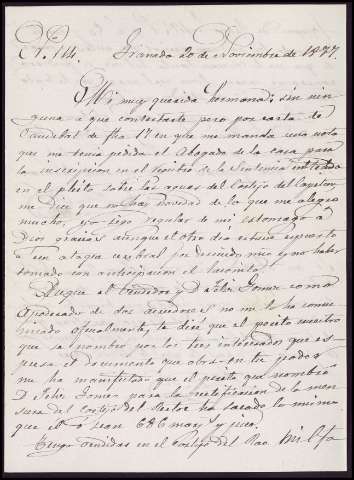 Nº 114. Granada 20 de Noviembre de 1877.
Mi muy querida hermana: sin nin-
guna á que contestarte pero por carta de
Candebat de fha 17 en que me manda una nota
que me tenia pedida el Abogado de la casa para
la inscripcion en el registro de la Sentencia
en el pleito sobre las aguas del Cortijo del
me dice que no hay novedad de lo que me alegro
mucho, yo sigo regular de mi estomago á
Dios gracias aunque el otro dia estuve espuesto
á un ataque cerebral por descuido mio y no haber
tomado con anticipacion el
el Vendedor y D. Felix Gomez como
Apoderado de dos acreedores no me lo ha comu-
nicado oficialmente, te diré que el perito nuestro
que se nombró por los tres interesados que es-
presa el documento que obra en tu poder
me ha manifestado que el perito que nombró
D. Felix Gomez para la rectificacion de la men-
sura del Cortijo del Rector ha sacado lo mismo
que él ó sean 686 mar y pico.
Tengo vendidas en el Cortijo del Rao mil